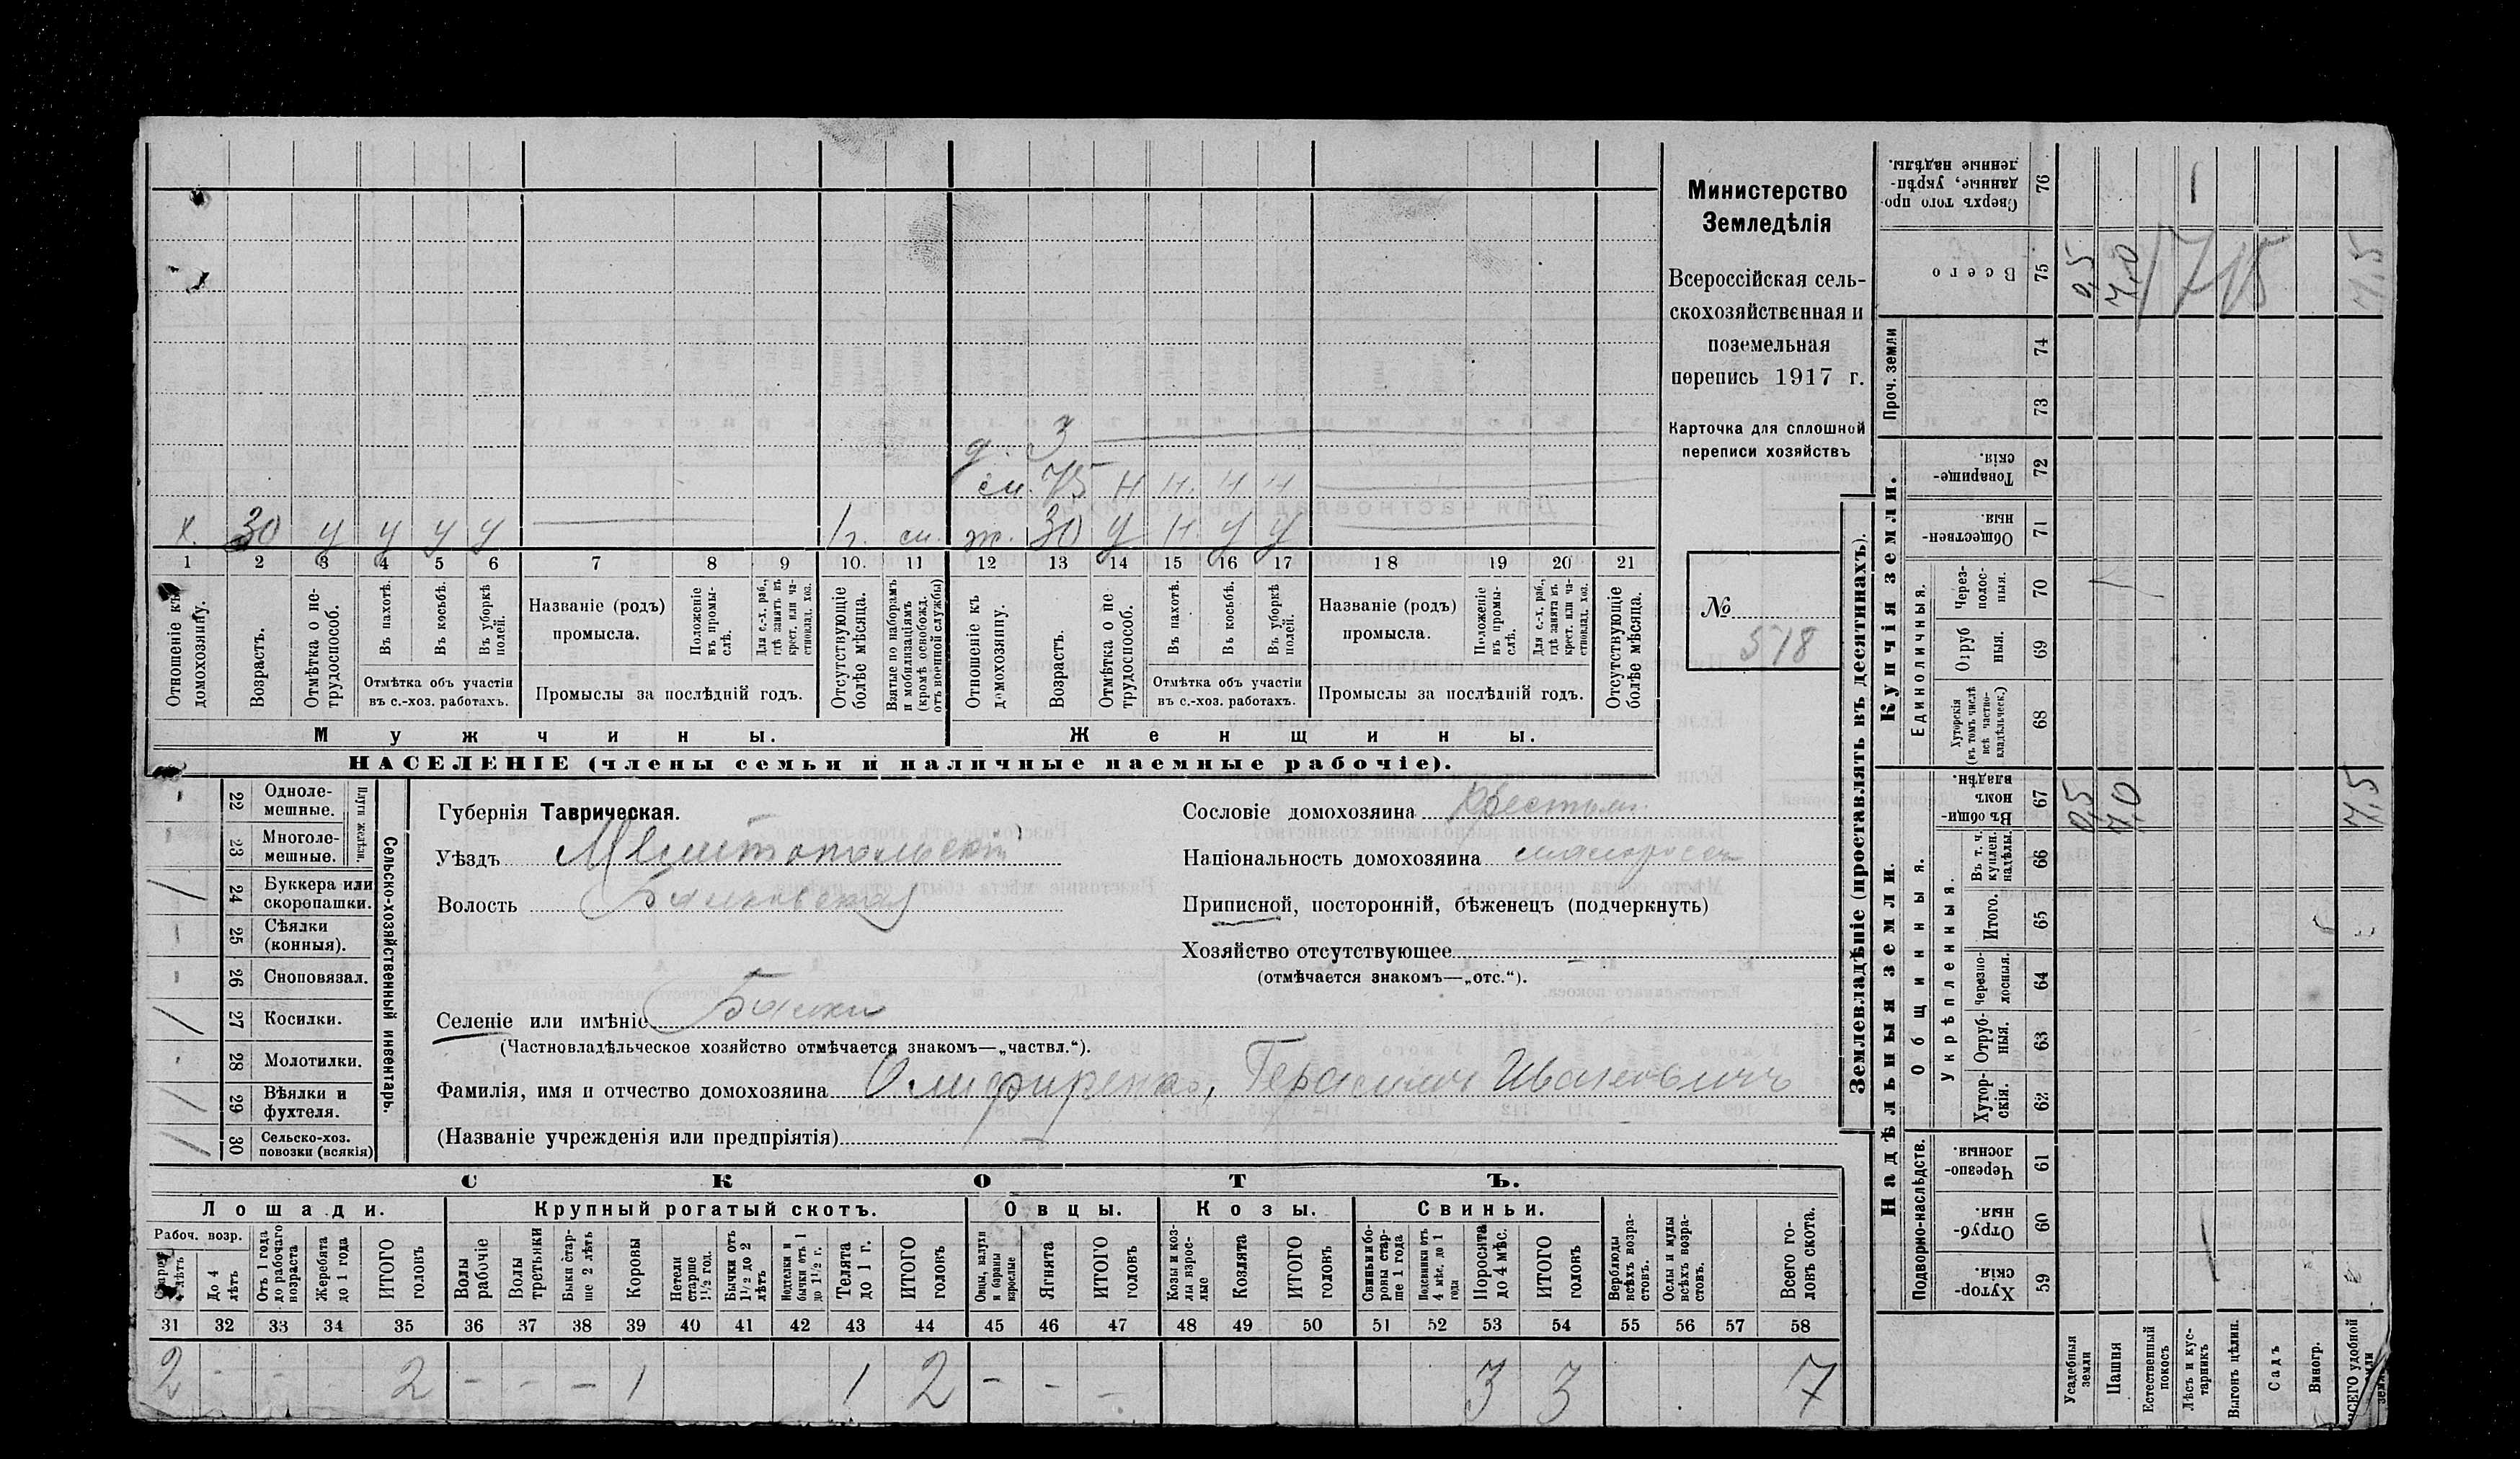 Министерство
Земледѣлія
Всероссійская сель-
скохозяйственная и
поземельная
перепись 1917 г.
Карточка для сплошной
переписи хозяйствъ
№
518
д. 3
см. 75 н н. н н
х. 30 у у у у 1 г. см. ж. 30 у н. у у
1 2 3 4 5 6 7 8 9 10. 11 12 13 14 15 16 17 18 19 20 21
Отношеніе къ домохозяину.
Возрастъ.
Отмѣтка о не-трудоспособ.
Въ пахотѣ.
Въ косьбѣ.
Въ уборкѣ полей.
Отмѣтка объ участіи
въ с.-хоз. работахъ.
Названіе (родъ)
промысла.
Положеніе въ промы-слѣ.
Для с.-х. раб., гдѣ занятъ въ крест. или ча-стновлад. хоз.
Промыслы за послѣдній годъ.
Отсутствующіе болѣе мѣсяца.
Взятые по наборамъ и мобилизаціямъ (кромѣ освобожд. отъ военной службы)
Отношеніе къ домохозяину.
Возрастъ.
Отмѣтка о не-трудоспособ.
Въ пахотѣ.
Въ косьбѣ.
Въ уборкѣ полей.
Отмѣтка объ участіи
въ с.-хоз. работахъ.
Названіе (родъ)
промысла.
Положеніе въ промы-слѣ.
Для с.-х. раб., гдѣ занята въ крест. или ча-стновлад. хоз.
Промыслы за послѣдній годъ.
Отсутствующіе болѣе мѣсяца.
Мужчины. Женщины.
НАСЕЛЕНІЕ (члены семьи и наличные наемные рабочіе).
22 Одноле-мешные.
23 Многоле-мешные.
Плуги желѣзн.
/ 24 Буккера или скоропашки.
25 Сѣялки (конныя).
26 Сноповязал.
/ 27 Косилки.
28 Молотилки.
/ 29 Вѣялки и фухтеля.
/ 30 Сельско-хоз. повозки (всякія)
Сельско-хозяйственный инвентарь.
Губернія Таврическая.
Уѣздъ Мелитопольскій
Волость Балковская
Селеніе или имѣніе Балки
(Частновладѣльческое хозяйство отмѣчается знакомъ—„частвл.“).
Фамилія, имя и отчество домохозяина Олифиренко, Герасимъ Ивановичъ
(Названіе учрежденія или предпріятія)
Сословіе домохозяина Крестьян.
Національность домохозяина малоросс
Приписной, посторонній, бѣженецъ (подчеркнуть)
Хозяйство отсутствующее –
(отмѣчается знакомъ—„отс.“).
СКОТЪ.
Лошади. Крупный рогатый скотъ. Овцы. Козы. Свиньи.
Рабоч. возр.
До 4 лѣтъ
Отъ 1 года до рабочаго возраста
Жеребята до 1 года
ИТОГО головъ
Волы рабочіе
Волы третьяки
Быки стар-ше 2 лѣтъ
Коровы
Нетели старше 1½ год.
Бычки отъ 1½ до 2 лѣтъ
Подтелки и бычки отъ 1 до 1½ г.
Телята до 1 г.
ИТОГО головъ
Овцы, валухи и бараны взрослые
Ягнята
ИТОГО головъ
Козы и коз-лы взрос-лые
Козлята
ИТОГО головъ
Свиньи и бо-ровы стар-ше 1 года
Подсвинки отъ 4 мѣс. до 1 года
Поросята до 4 мѣс.
ИТОГО головъ
Верблюды всѣхъ возра-стовъ.
Ослы и мулы всѣхъ возра-стовъ.
Всего го-ловъ скота.
31 32 33 34 35 36 37 38 39 40 41 42 43 44 45 46 47 48 49 50 51 52 53 54 55 56 57 58
2 - - 2 - - - 1 1 2 - - - 3 3 7
Землевладѣніе (проставлять въ десятинахъ).
Сверхъ того про-данные, укрѣп-ленные надѣлы. 76
Всего 75 0,5 7,0 7,5
Проч. земли 74
73
Купчія земли.
Товарище-скія. 72
Обществен-ныя. 71
Единоличныя.
Через-полос-ныя. 70
Отруб ныя. 69
Хуторскія (въ томъ числѣ всѣ частно-владѣльческ.) 68
Надѣльныя земли.
Общинныя.
Въ общи-номъ владѣн. 67 0,5 7,0 7,5
Укрѣпленныя.
Въ т. ч. куплен. надѣлы. 66
Итого. 65
Черезпо-лосныя. 64
Отруб-ныя. 63
Хутор-скія. 62
Подворно-наслѣдств.
Черезпо-лосныя. 61
Отруб-ныя. 60
Хутор-скія. 59
Усадебныя земли
Пашня
Естественный покосъ
Лѣсъ и кус-тарникъ
Выгонъ цѣлин.
Садъ
Виногр.
ВСЕГО удобной земли